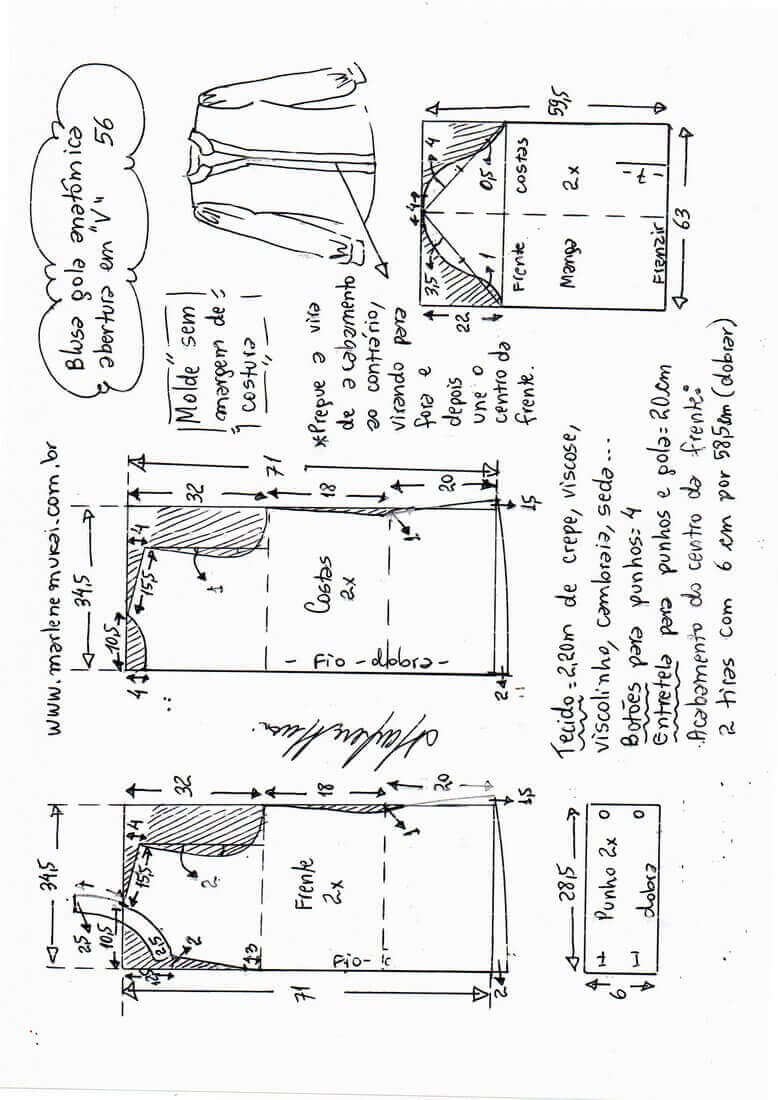 Blusa gola anatômica
abertura em "V" 56
www.marlenemukai.com.br
Molde sem
margem de
costura
*Pregue a vira
de acabamento
ao contrário,
virando para
fora e
depois
une o
centro da
frente.
59,5
4
4
3,5
0,5
1
22
Frente
costas
Manga
2x
7
Franzir
63
34,5
10,5
4
4
15,5
1
32
18
20
71
1
1,5
2
Costas
2x
- Fio - dobra -
34,5
2,5
10,5
2,5
2
3
4
15,5
2
32
18
20
71
1
1,5
2
Frente
2x
Fio
28,5
6
Punho 2x
dobra
Tecido = 2,20m de crepe, viscose,
viscolinho, cambraia, seda...
Botões para punhos: 4
Entretela para punhos e gola = 20cm
.Acabamento do centro da frente:
2 tiras com 6 cm por 58,5cm (dobrar)